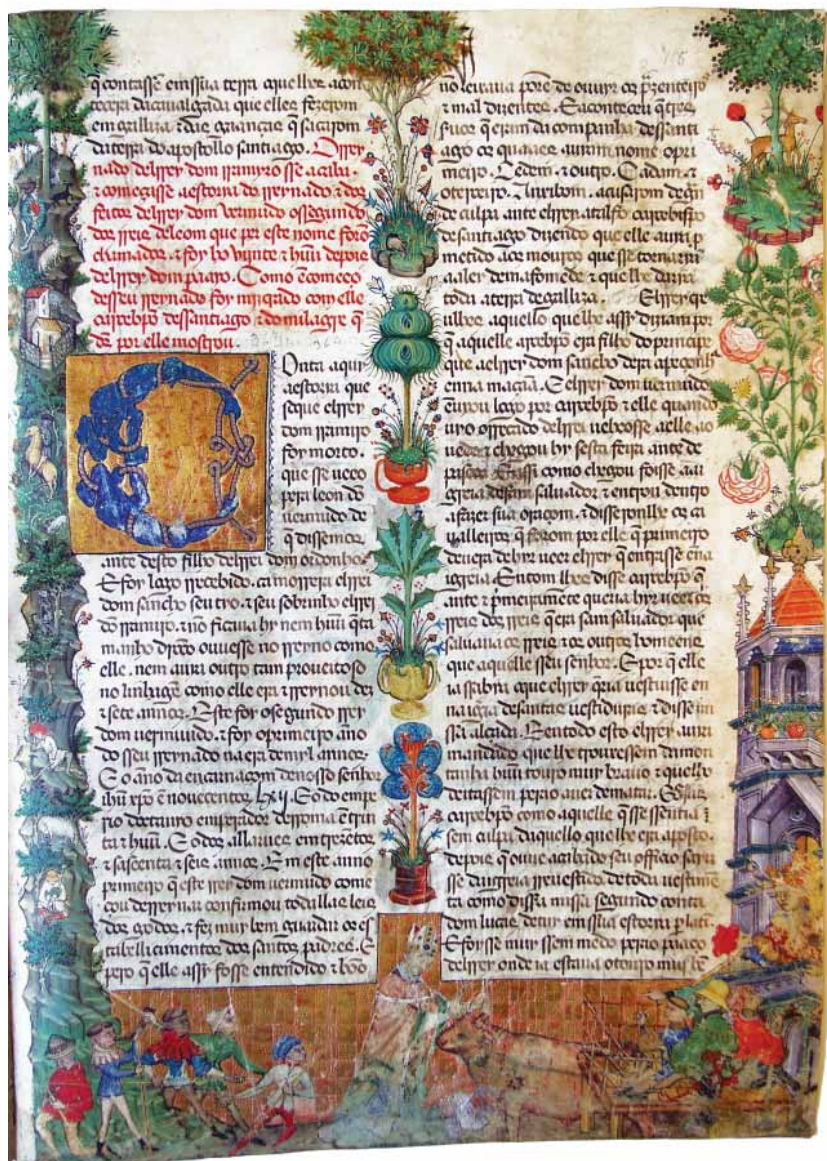 q̃ contasse em ssua terra o que lhes acon
tecera da caualgada que elles fezerom
em galliza & das gaanças q̃ sacarom
da terra do apostollo santiago. O rrey
nado delrrey dom rramyro sse acaba.
& começasse a estoria do rreynado & dos
feitos delrrey dom vermudo o ssegundo
dos rreis de leom que per este nome forō
chamados. & foy ho vijnte & hūu depois
delrrey dom paayo. Como ē começo
desseu rreynado foy mizcrado com elle
o arcebp̄o de ssantiago & do milagre q̃
ds̄ por elle mostrou.
Onta aqui
a estoria que
des que elrrey
dom rramiro
foy morto.
que sse ueeo
pera leon dō
uermudo de
q̃ dissemos
ante desto filho delrrei dom ordonho.
E foy logo rrecebido. ca morrera elrrei
dom sancho seu tyo. & seu sobrinho elrrei
dō rramiro. & nō ficaua hy nem hūu q̃ ta
manho drcō ouuesse no rreyno como
elle. nem auia outro tam proueitoso
no linhagē como elle era & rreynou dez
& sete annos. Este foy o segundo rrey
dom uermuudo. & foy o primeiro āno
do sseu rreynado na era de myl annos.
E o ano da encarnaçom de nosso señhor
ihū xp̄o ē nouecentos lxij. E o do empe
rio doctauo emperador de rroma ē trin
ta & hūu. E o dos allaraues em trezētos
& sasceenta & seis annos. Em este anno
primeiro q̃ este rrey dom uermudo come
çou de rreynar confirmou todallas leis
dos godos. & fez muy bem guardar os es
tabellicimentos dos santos padres. E
pero q̃ elle assy fosse entendido & bōo
nō leixaua porē de ouuir os prazenteiros
& mal dizentes. E aconteceu q̃ tres
seruos q̃ eram da companha dessanti
ago os quaaes auiam nome o pri
meiro. Zedem. & o outro. Cadam. &
o terceiro. Ansibom. acusarom de grā
de culpa ante elrrey a tallfo o arcebispo
de santiago dizendo que elle auia p̃
metido aos mouros que sse tornaria
a a ley de mafomede & que lhe daria
toda a terra de galliza. Elrrey cre
ulhes aquello que lhe assy diziam por
q̃ aquelle arcebp̄o era filho do principe
que a elrrey dom sancho dera a peçonh̄
en na maçaā. E elrrey dom uermudo
ēuyou logo por o arcebp̄o & elle quando
uyo o rrecado delrrei ueheosse a elle ao
uedo & chegou hy sesta feira ante de
pascoa. E assi como chegou foisse aa i
greia de sam saluador & entrou dentro
a fazer sua oraçom. & disseronlhe os ca
ualleiros q̃ forom por elle q̃ primeiro
deuera de hyr ueer elrrey q̃ entrasse ē na
igreia. Entom lhes disse o arcebp̄o q̃
ante & p̃meiramēte queria hyr ueer o
rreis dos rreis q̃ era sam saluador que
saluaua os rreis & os outros homeens
que aquelle sseu senhor. E por q̃ elle
ia ssabia o que elrrey q̃ria uestiusse en
na igreia de santas uestiduras & disse mi
ssa alçada. E entodo esto elrrey auia
mandado que lhe trouxessem da mon
tanha hūu touro muy brauo & que lho
deitassem pera o auer de matar. E este
arcebp̄o como aquelle q̃ sse ssentia
sem culpa daquello que lhe era aposto.
depois q̃ ouue acabado seu officio sayu
sse da igreia rreuestido. de toda uestimē
ta como dissera missa segundo conta
dom lucas de tuy em ssua estoria p̃ lati.
E foysse muy ssem medo pera o paaço
delrrey onde ia estaua o touro mui bē